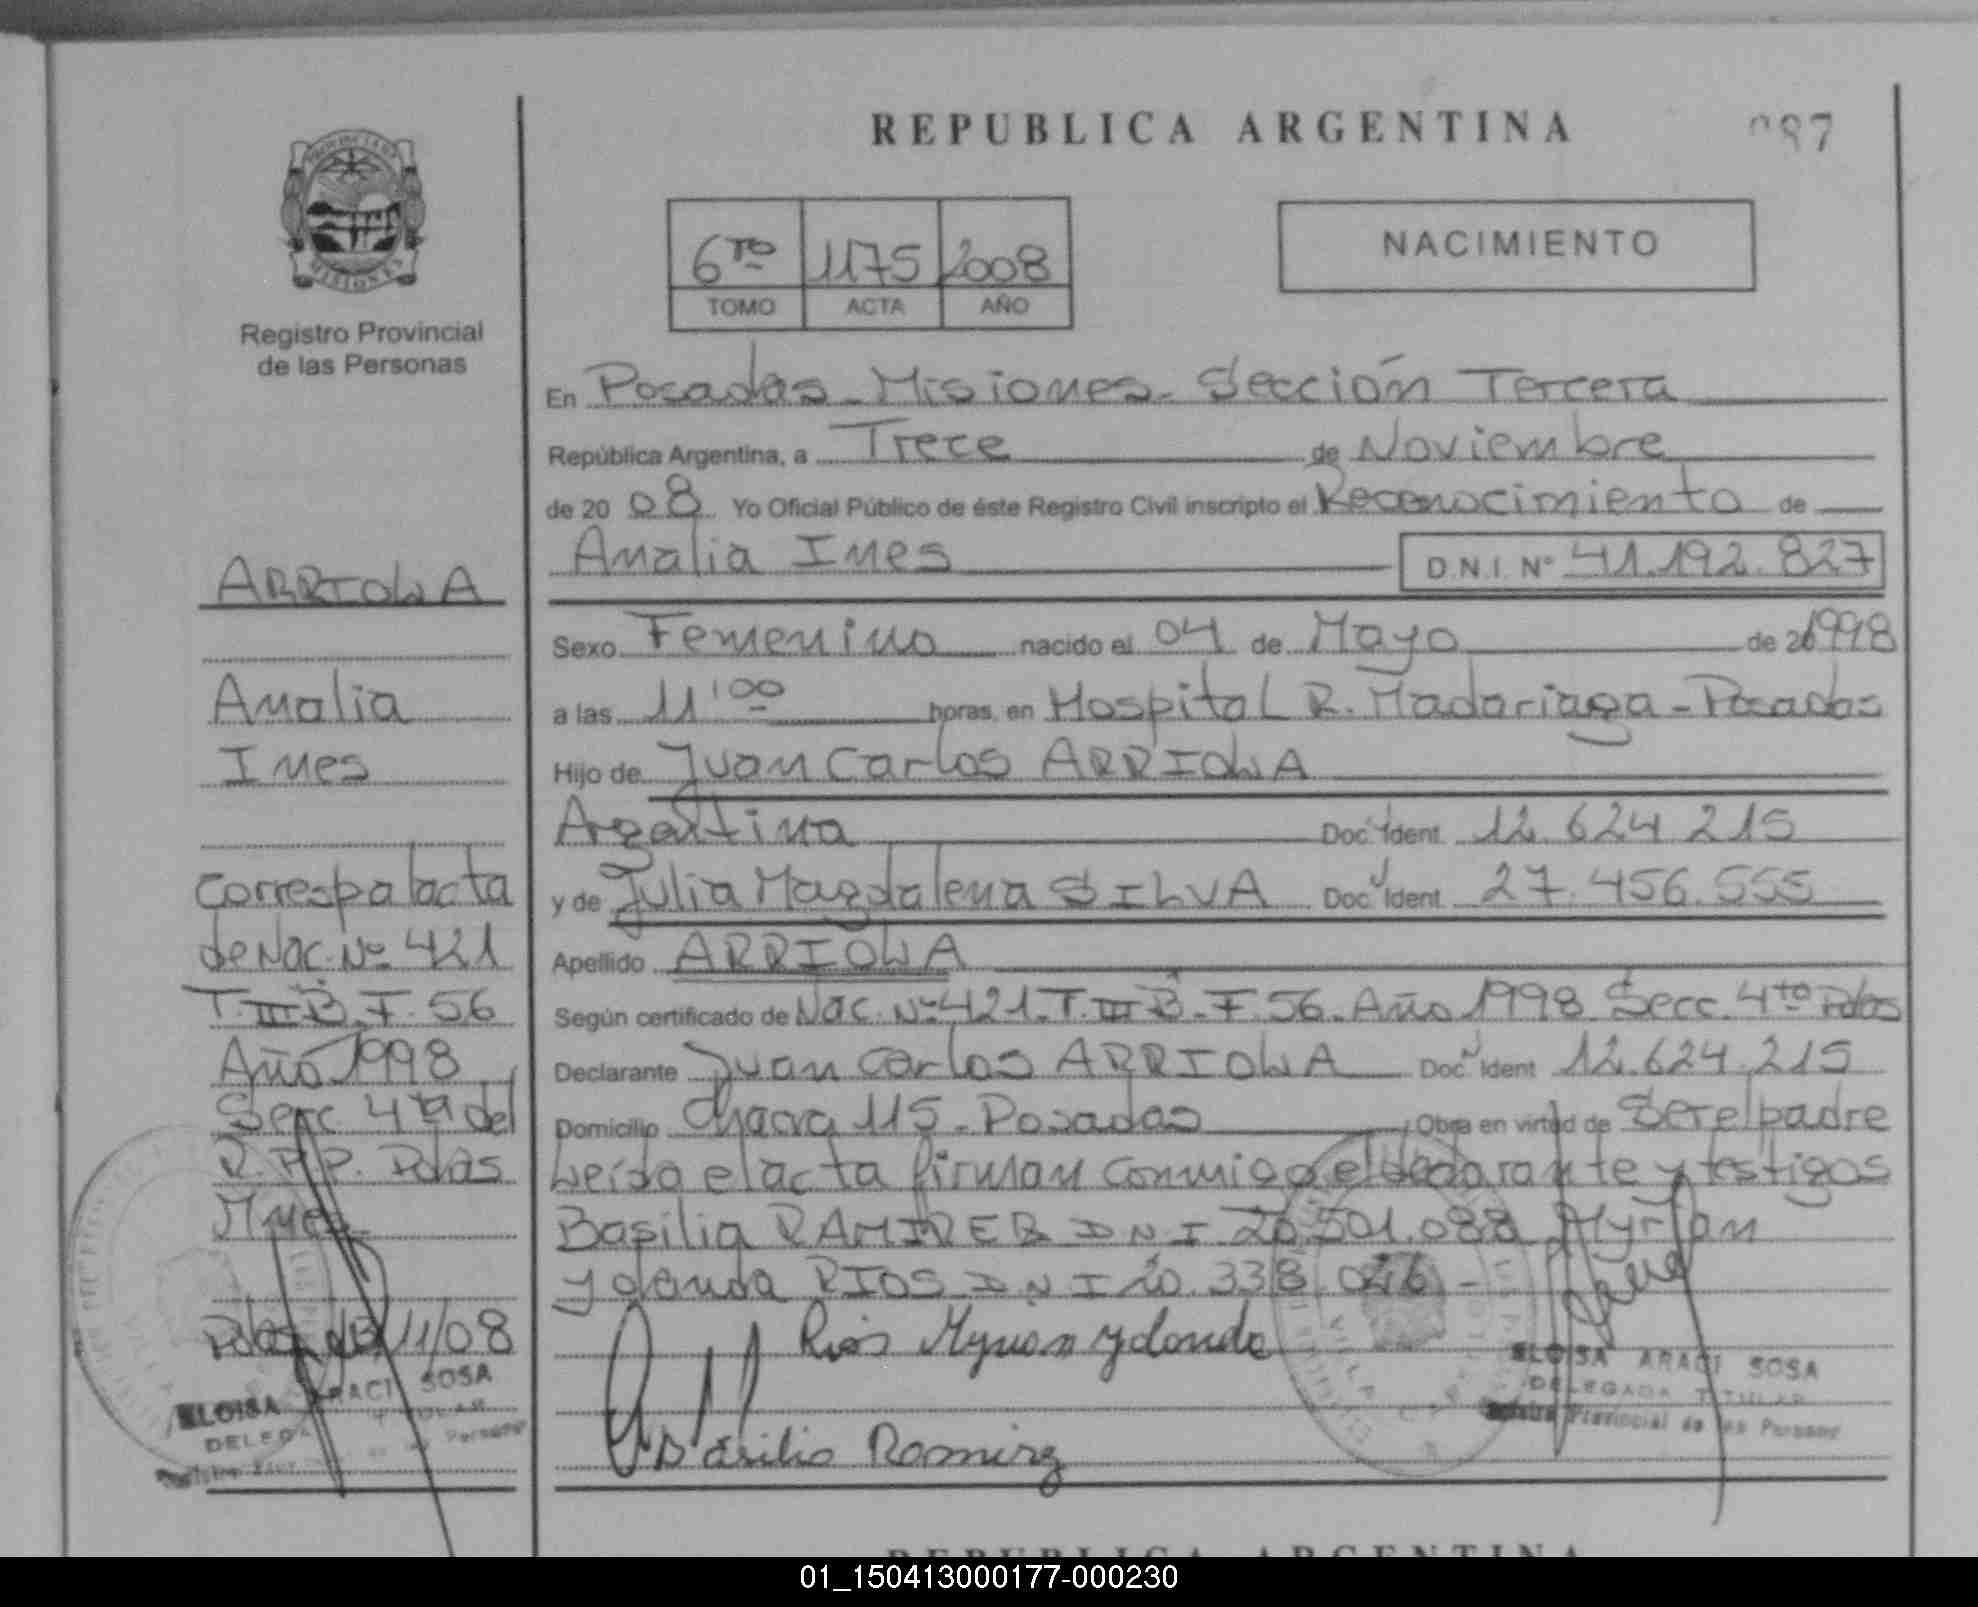 REPUBLICA ARGENTINA
087
PROVINCIA DE
MISIONES
Registro Provincial
de las Personas
6TO 1175 2008
TOMO ACTA AÑO
NACIMIENTO
En Posadas - Misiones - Sección Tercera
República Argentina, a Trece de Noviembre
de 20 08 Yo Oficial Público de éste Registro Civil inscripto el Reconocimiento de
Analia Ines D.N.I. Nº 41.192.827
Sexo Femenino nacido el 04 de Mayo de 1998
a las 11'00 horas, en Hospital R. Madariaga - Posadas
Hijo de Juan Carlos ARRIOLA
Argentina Doc. Ident. 12.624.215
y de Julia Magdalena SILVA Doc. Ident. 27.456.555
Apellido ARRIOLA
Según certificado de Nac. Nº 421 - T. III B - F. 56 - Año 1998 Secc. 4to Pdas
Declarante Juan Carlos ARRIOLA Doc. Ident 12.624.215
Domicilio Chacra 115 - Posadas Obra en virtud de Ser el padre
Leída el acta firman conmigo el declarante y testigos
Basilia RAMIREZ DNI 20.501.088 Myrian
Yolanda RIOS DNI 20.338.026 -
Rios Myrian Yolanda
Basilio Ramirez
ELOISA ARACI SOSA
DELEGADA TITULAR
Registro Provincial de las Personas
ARRIOLA
Analia
Ines
Corresp a la acta
de Nac. Nº 421
T. III B. F. 56
Año 1998
Secc. 4ta del
R.P.P. Pdas
Mnes
Pdas 13/11/08
ELOISA ARACI SOSA
REPUBLICA ARGENTINA
01_150413000177-000230